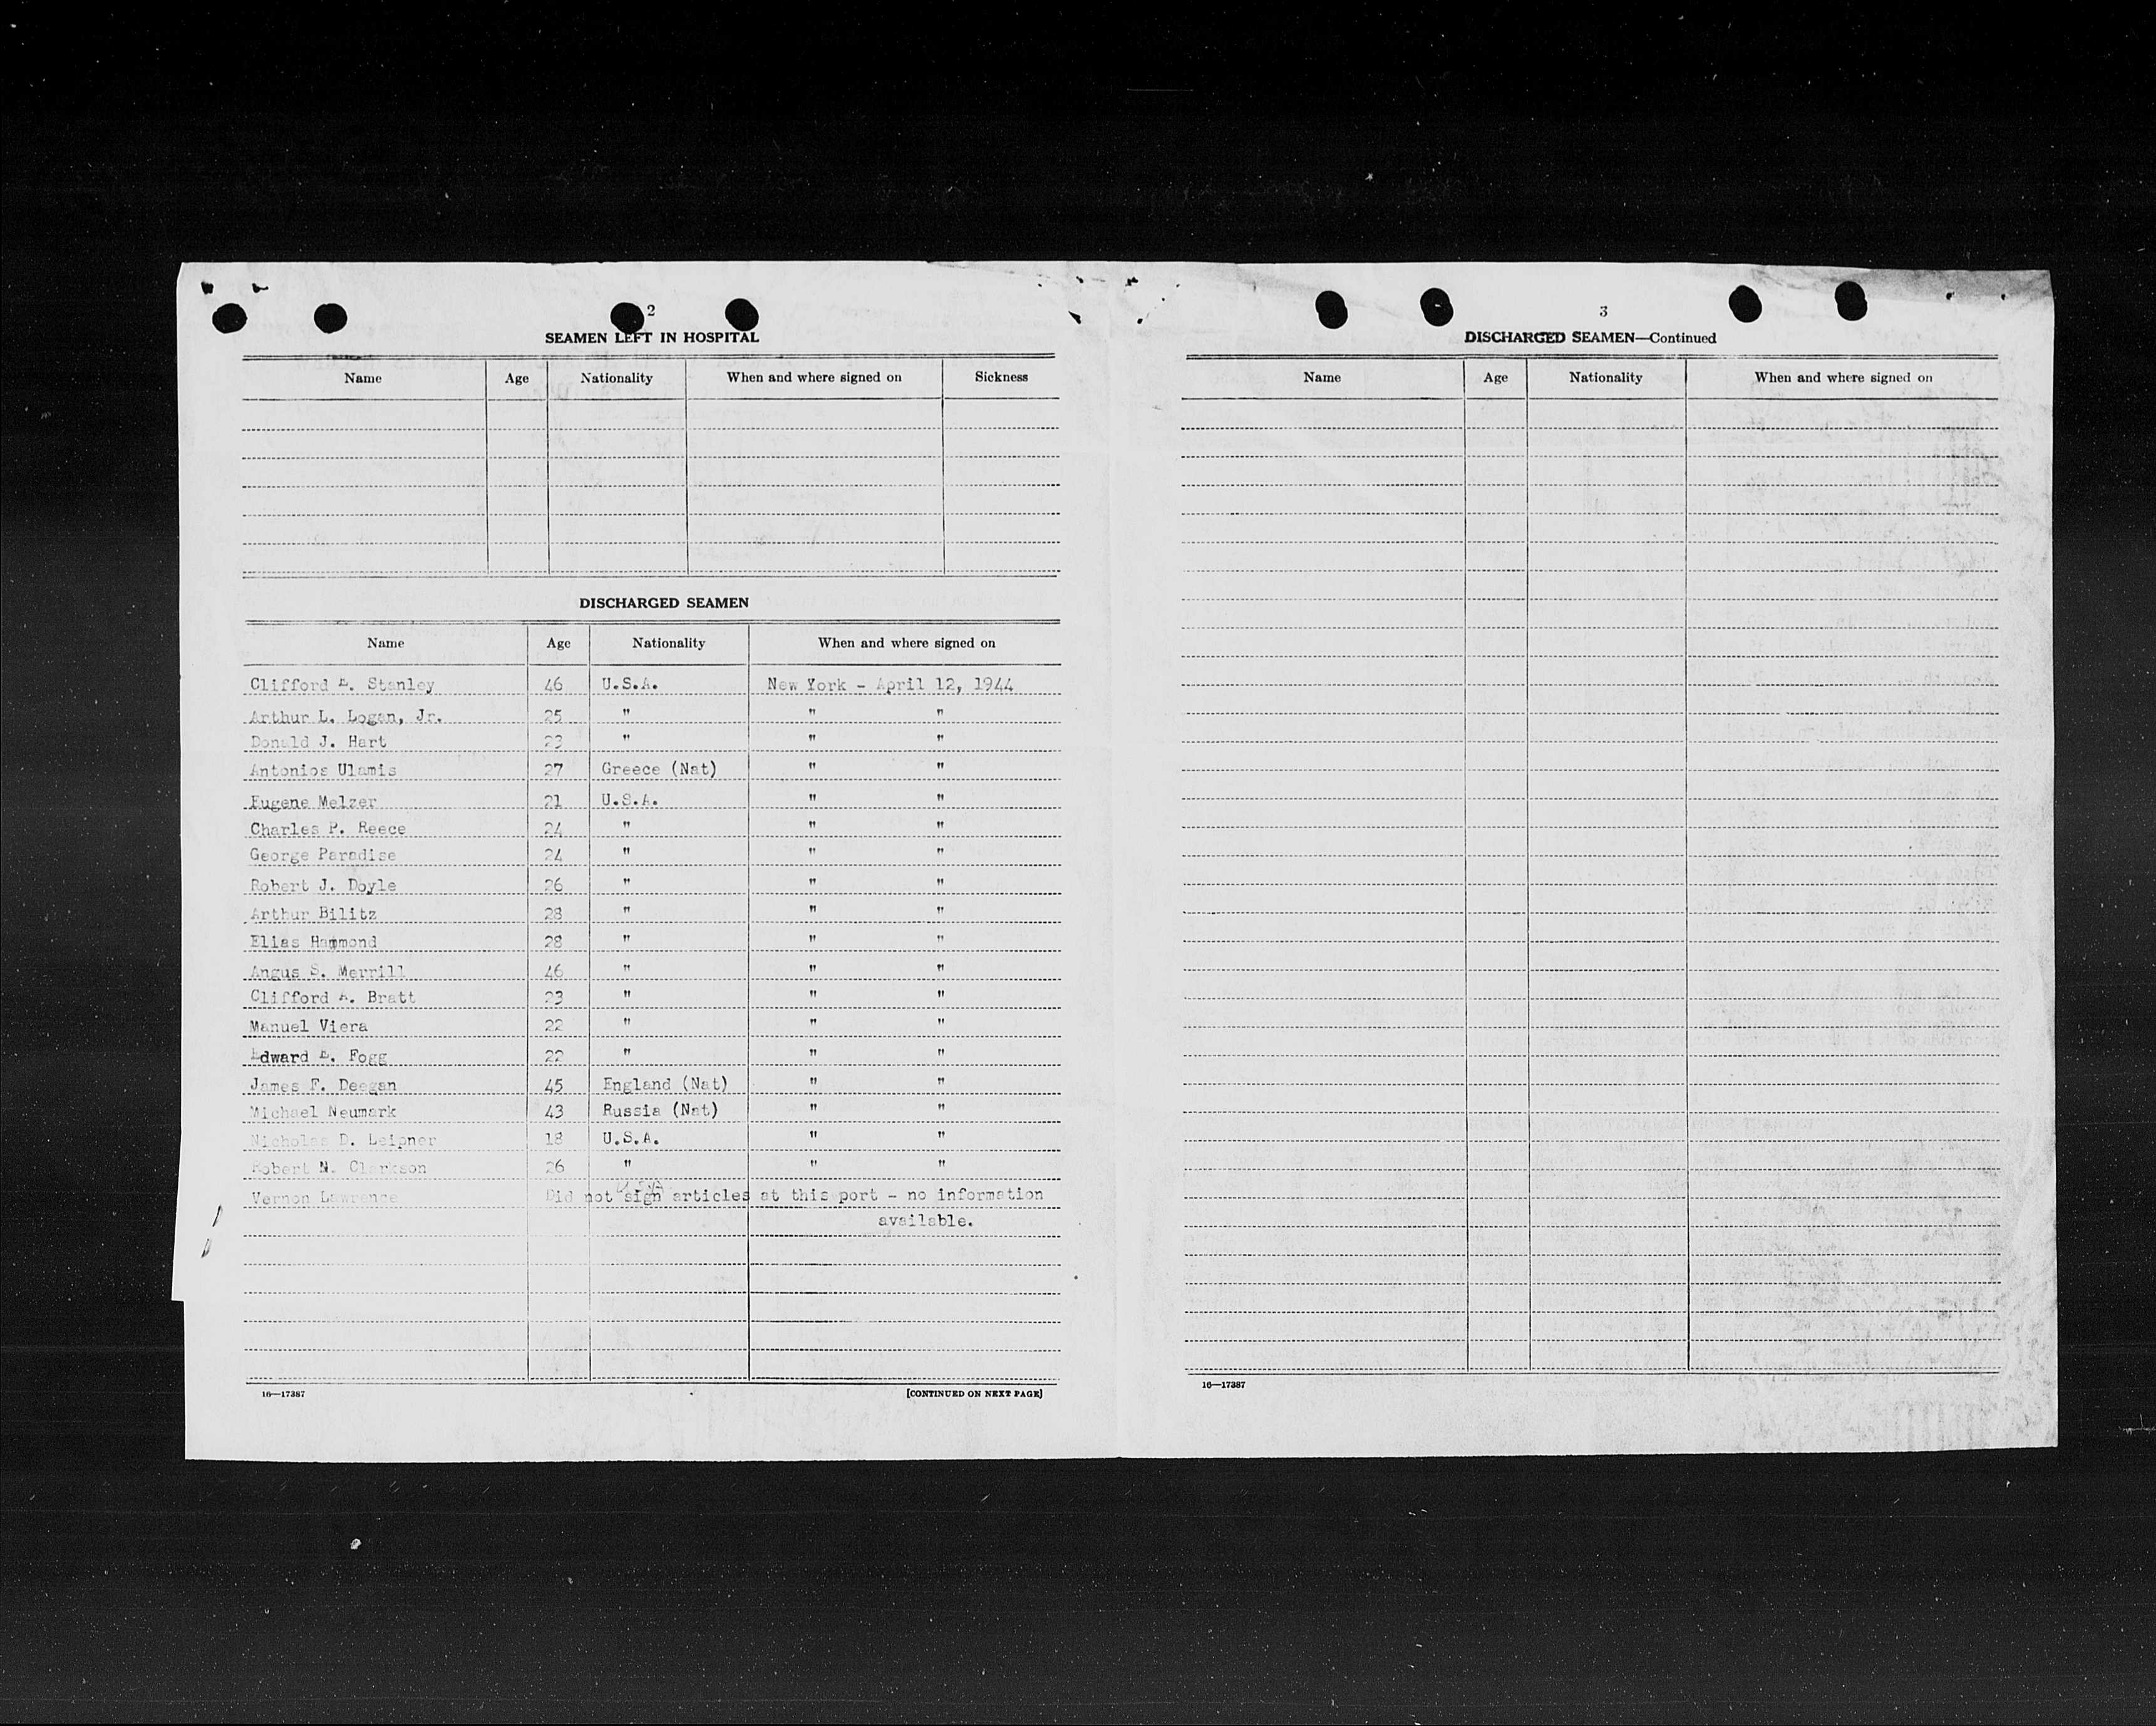 2
SEAMEN LEFT IN HOSPITAL
Name Age Nationality When and where signed on Sickness
DISCHARGED SEAMEN
Name Age Nationality When and where signed on
Clifford E. Stanley 46 U.S.A. New York - April 12, 1944
Arthur L. Logan, Jr. 25 " " "
Donald J. Hart 23 " " "
Antonios Ulamis 27 Greece (Nat) " "
Eugene Melzer 21 U.S.A. " "
Charles P. Reece 24 " " "
George Paradise 24 " " "
Robert J. Doyle 26 " " "
Arthur Bilitz 28 " " "
Elias Hammond 28 " " "
Angus S. Merrill 46 " " "
Clifford A. Bratt 23 " " "
Manuel Viera 22 " " "
Edward E. Fogg 22 " " "
James F. Deegan 45 England (Nat) " "
Michael Neumark 43 Russia (Nat) " "
Nicholas D. Leipner 18 U.S.A. " "
Robert N. Clarkson 26 " " "
U.S.A.
Vernon Lawrence Did not sign articles at this port - no information
available.
16—17387 [CONTINUED ON NEXT PAGE]
3
DISCHARGED SEAMEN—Continued
Name Age Nationality When and where signed on
16—17387